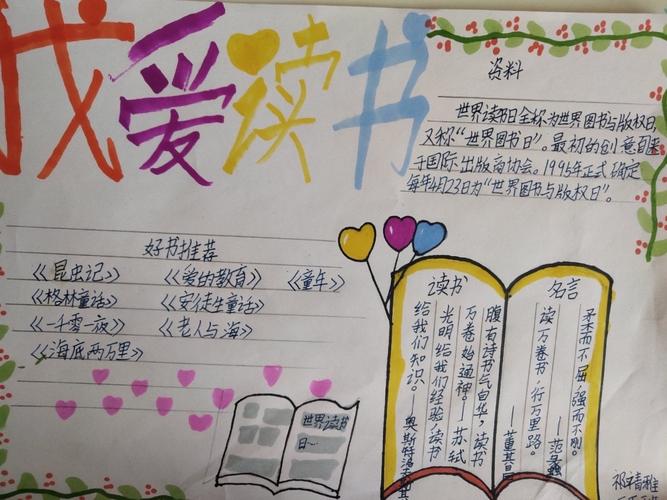 我爱读书
资料
世界读书日全称为世界图书与版权日,
又称“世界图书日”。最初的创意自来
于国际出版商协会。1995年正式确定
每年4月23日为“世界图书与版权日”。
好书推荐
《昆虫记》 《爱的教育》 《童年》
《格林童话》 《安徒生童话》
《一千零一夜》 《老人与海》
《海底两万里》
世界读书
日…
名言
矛柔而不屈,强而不刚。
——范蠡
读万卷书,行万里路。
——董其昌
读书
腹有诗书气自华,读书
万卷始通神!——苏轼
光明给我们经验,读书
给我们知识。
奥斯特洛夫斯基